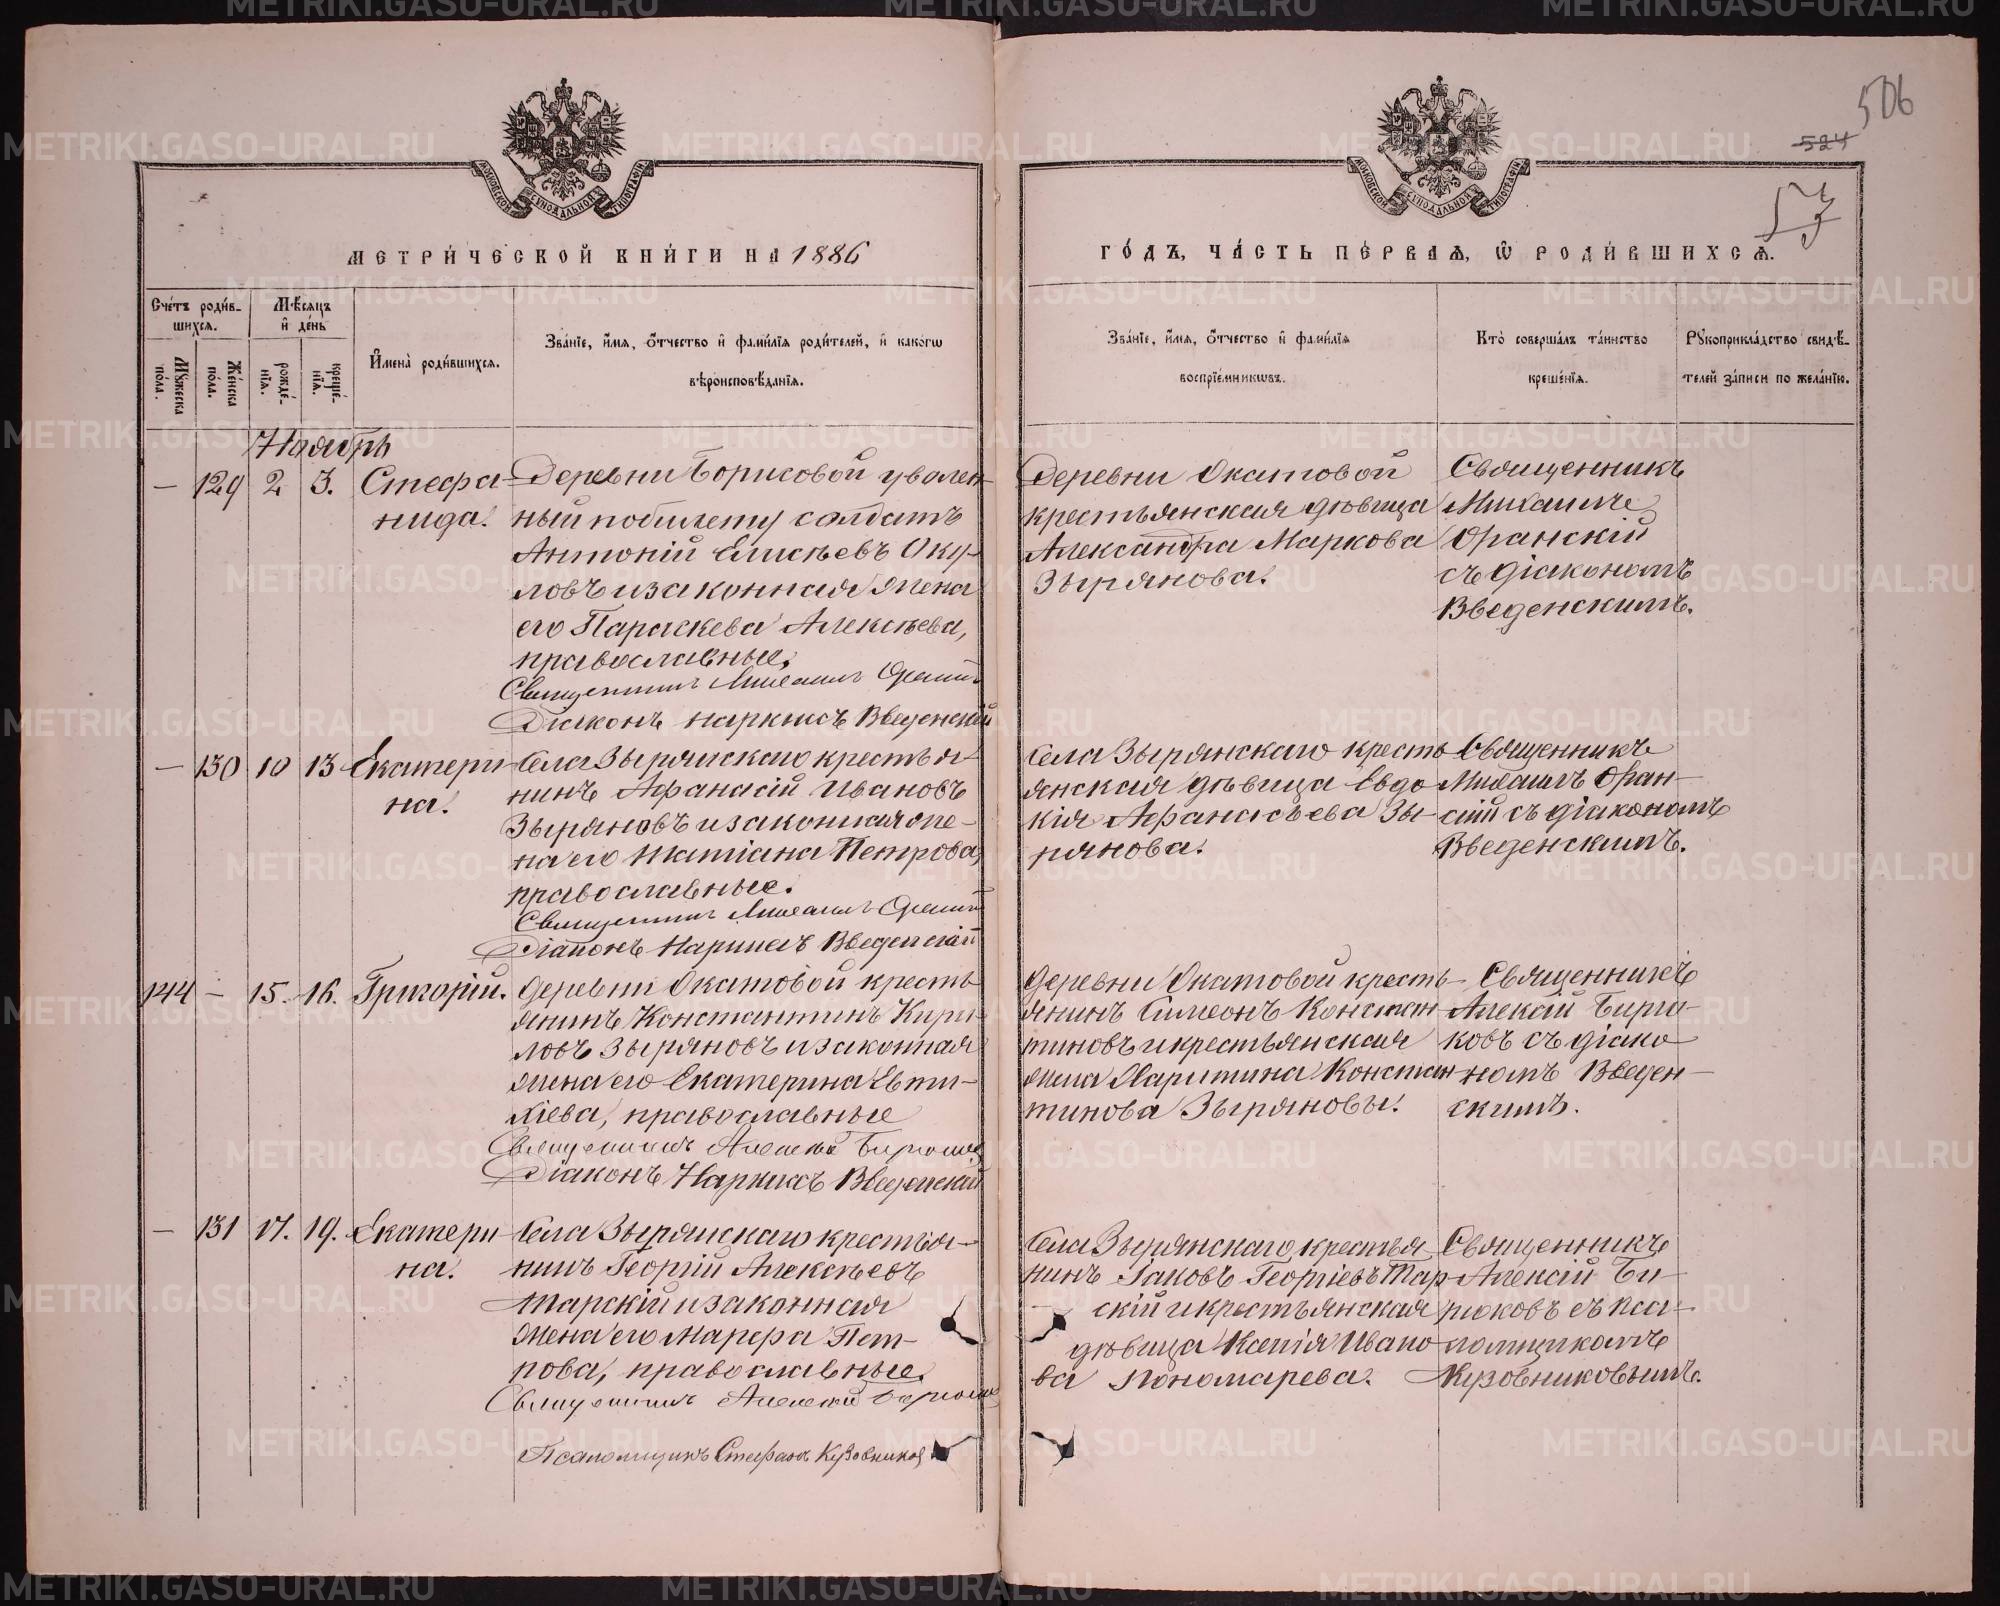 506
524
57
МОСКОВСКОЙ СѴНОДАЛЬНОЙ ТИПОГРАФІИ
МОСКОВСКОЙ СѴНОДАЛЬНОЙ ТИПОГРАФІИ
МЕТРИ́ЧЕСКОЙ КНИ́ГИ НА 1886
ГО́ДЪ, ЧА́СТЬ ПЕ́РВАѦ, Ѡ҆ РОДИ́ВШИХСѦ.
Сче́тъ роди́в-
шихсѧ.
Мѣ́сѧцъ
и҆ де́нь
Мꙋ́жеска
по́ла.
Же́нска
по́ла.
рожде́-
нїѧ.
креще́-
нїѧ.
И҆мена̀ роди́вшихсѧ.
Зва́нїе, и҆́мѧ, ѻ҆́тчество и҆ фами́лїѧ роди́телей, и҆ како́гѡ
вѣроисповѣ́данїѧ.
Зва́нїе, и҆́мѧ, ѻ҆́тчество и҆ фами́лїѧ
воспрїе́мникѡвъ.
Кто̀ соверша́лъ та́инство
креще́нїѧ.
Рꙋкоприкла́дство свидѣ́-
телей за́писи по жела́нїю.
Ноябрь
— 129 2 3. Стефа-
нида.
Деревни Борисовой уволен-
ный по билету солдатъ
Антоній Елисѣевъ Оку-
ловъ и законная жена
его Параскева Алексѣева,
православные.
Священникъ Михаилъ Оранскій
Діаконъ Наркисъ Введенскій
Деревни Окатовой
крестьянская дѣвица
Александра Маркова
Зырянова.
Священникъ
Михаилъ
Оранскій
съ діакономъ
Введенскимъ.
— 130 10 13 Екатери-
на.
Села Зырянскаго крестья-
нинъ Афанасій Ивановъ
Зыряновъ и законная же-
на его Татіана Петрова,
православные.
Священникъ Михаилъ Оранскій
Діаконъ Наркисъ Введенскій
Села Зырянскаго кресть-
янская дѣвица Евдо-
кія Афанасьева Зы-
рянова.
Священникъ
Михаилъ Оран-
скій съ діакономъ
Введенскимъ.
144 — 15. 16. Григорій.
Деревни Окатовой кресть-
янинъ Константинъ Кири-
ловъ Зыряновъ и законная
жена его Екатерина Евти-
хіева, православные
Священникъ Алексій Бирюковъ
Діаконъ Наркисъ Введенскій
Деревни Окатовой кресть-
янинъ Симеонъ Констан-
тиновъ и крестьянская
жена Харитина Констан-
тинова Зыряновы.
Священникъ
Алексій Бирю-
ковъ съ діако-
номъ Введен-
скимъ.
— 131 17. 19. Екатери-
на.
Села Зырянскаго крестья-
нинъ Георгій Алексѣевъ
Тарскій и законная
жена его Марфа Пет-
рова, православные.
Священникъ Алексій Бирюковъ
Псаломщикъ Стефанъ Кузовниковъ
Села Зырянскаго крестья-
нинъ Іаковъ Георгіевъ Тар-
скій и крестьянская
дѣвица Ксенія Ивано-
ва Пономарева.
Священникъ
Алексій Би-
рюковъ съ пса-
ломщикомъ
Кузовниковымъ.
METRIKI.GASO-URAL.RU